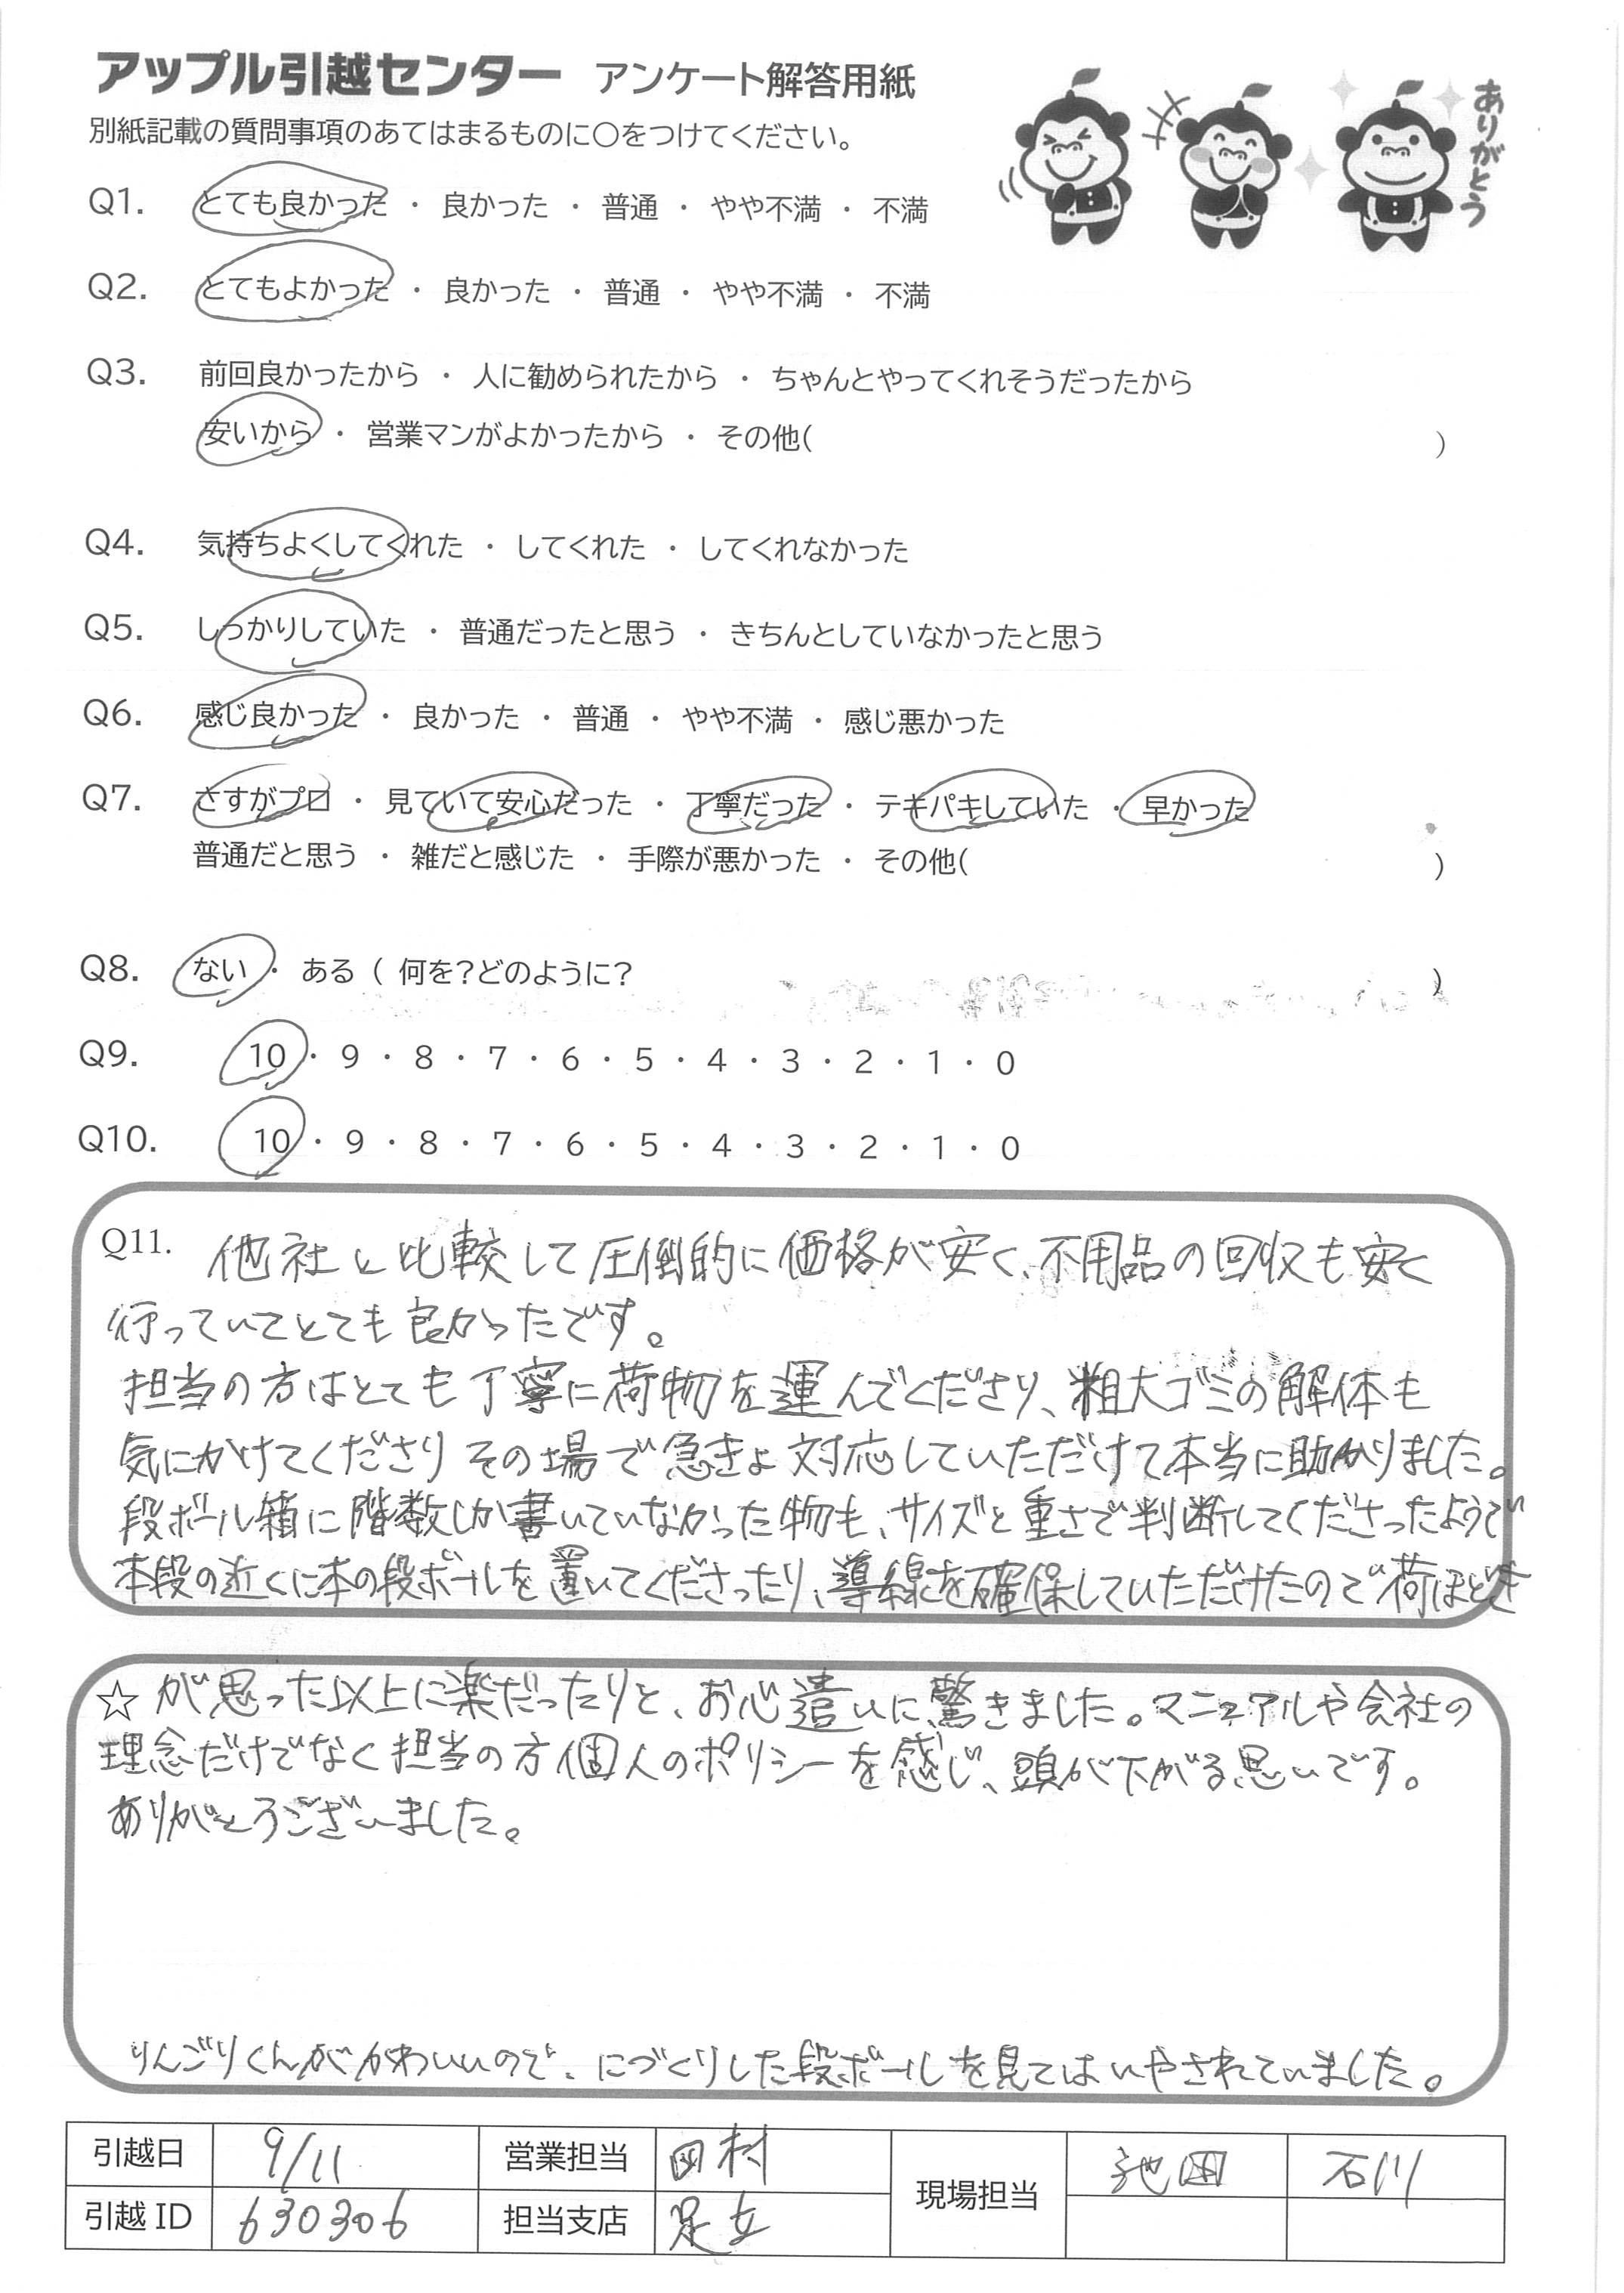 アップル引越センター アンケート解答用紙
別紙記載の質問事項のあてはまるものに○をつけてください。
ありがとう
Q1. とても良かった ・ 良かった ・ 普通 ・ やや不満 ・ 不満
Q2. とてもよかった ・ 良かった ・ 普通 ・ やや不満 ・ 不満
Q3. 前回良かったから ・ 人に勧められたから ・ ちゃんとやってくれそうだったから
安いから ・ 営業マンがよかったから ・ その他( )
Q4. 気持ちよくしてくれた ・ してくれた ・ してくれなかった
Q5. しっかりしていた ・ 普通だったと思う ・ きちんとしていなかったと思う
Q6. 感じ良かった ・ 良かった ・ 普通 ・ やや不満 ・ 感じ悪かった
Q7. さすがプロ ・ 見ていて安心だった ・ 丁寧だった ・ テキパキしていた ・ 早かった
普通だと思う ・ 雑だと感じた ・ 手際が悪かった ・ その他( )
Q8. ない ・ ある ( 何を?どのように? )
Q9. 10 ・ 9 ・ 8 ・ 7 ・ 6 ・ 5 ・ 4 ・ 3 ・ 2 ・ 1 ・ 0
Q10. 10 ・ 9 ・ 8 ・ 7 ・ 6 ・ 5 ・ 4 ・ 3 ・ 2 ・ 1 ・ 0
Q11. 他社と比較して圧倒的に価格が安く、不用品の回収も安く
行っていてとても良かったです。
担当の方はとても丁寧に荷物を運んでくださり、粗大ゴミの解体も
気にかけてくださりその場で急きょ対応していただけて本当に助かりました。
段ボール箱に階数しか書いていなかった物も、サイズと重さで判断してくださったようで
本段の近くに本の段ボールを置いてくださったり、導線を確保していただけたので荷ほどき
☆ が思った以上に楽だったりと、お心遣いに驚きました。マニュアルや会社の
理念だけでなく担当の方個人のポリシーを感じ、頭が下がる思いです。
ありがとうございました。
りんごりくんがかわいいので、にづくりした段ボールを見てはいやされていました。
引越日 9/11 営業担当 田村 現場担当 池田 石川
引越 ID 630306 担当支店 足立